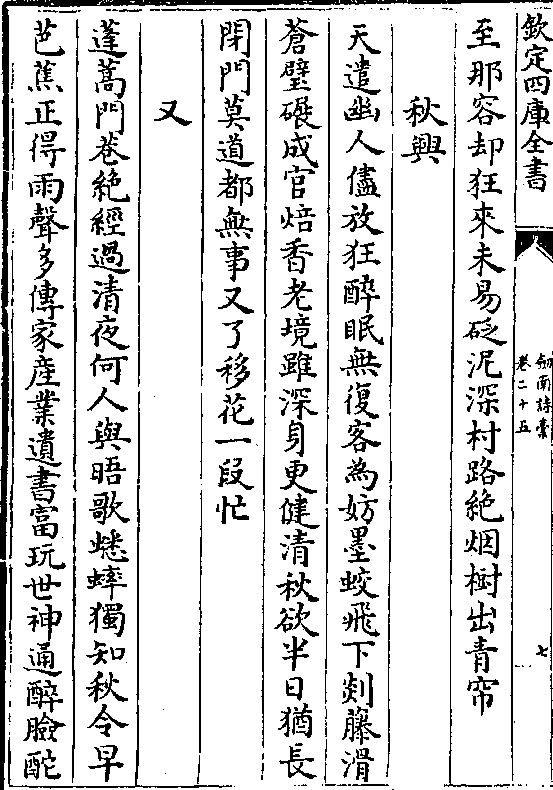 欽定四庫全書
劍南詩稾
卷二十五
七
至那容却狂來未易砭泥深村路絶烟樹出青帘
秋興
天遣幽人儘放狂醉眠無復客為妨墨蛟飛下剡藤滑
蒼璧碾成官焙香老境雖深身更健清秋欲半日猶長
閉門莫道都無事又了移花一段忙
又
蓬蒿門巷絶經過清夜何人與晤歌蟋蟀獨知秋令早
芭蕉正得雨聲多傳家産業遺書富玩世神通醉臉酡